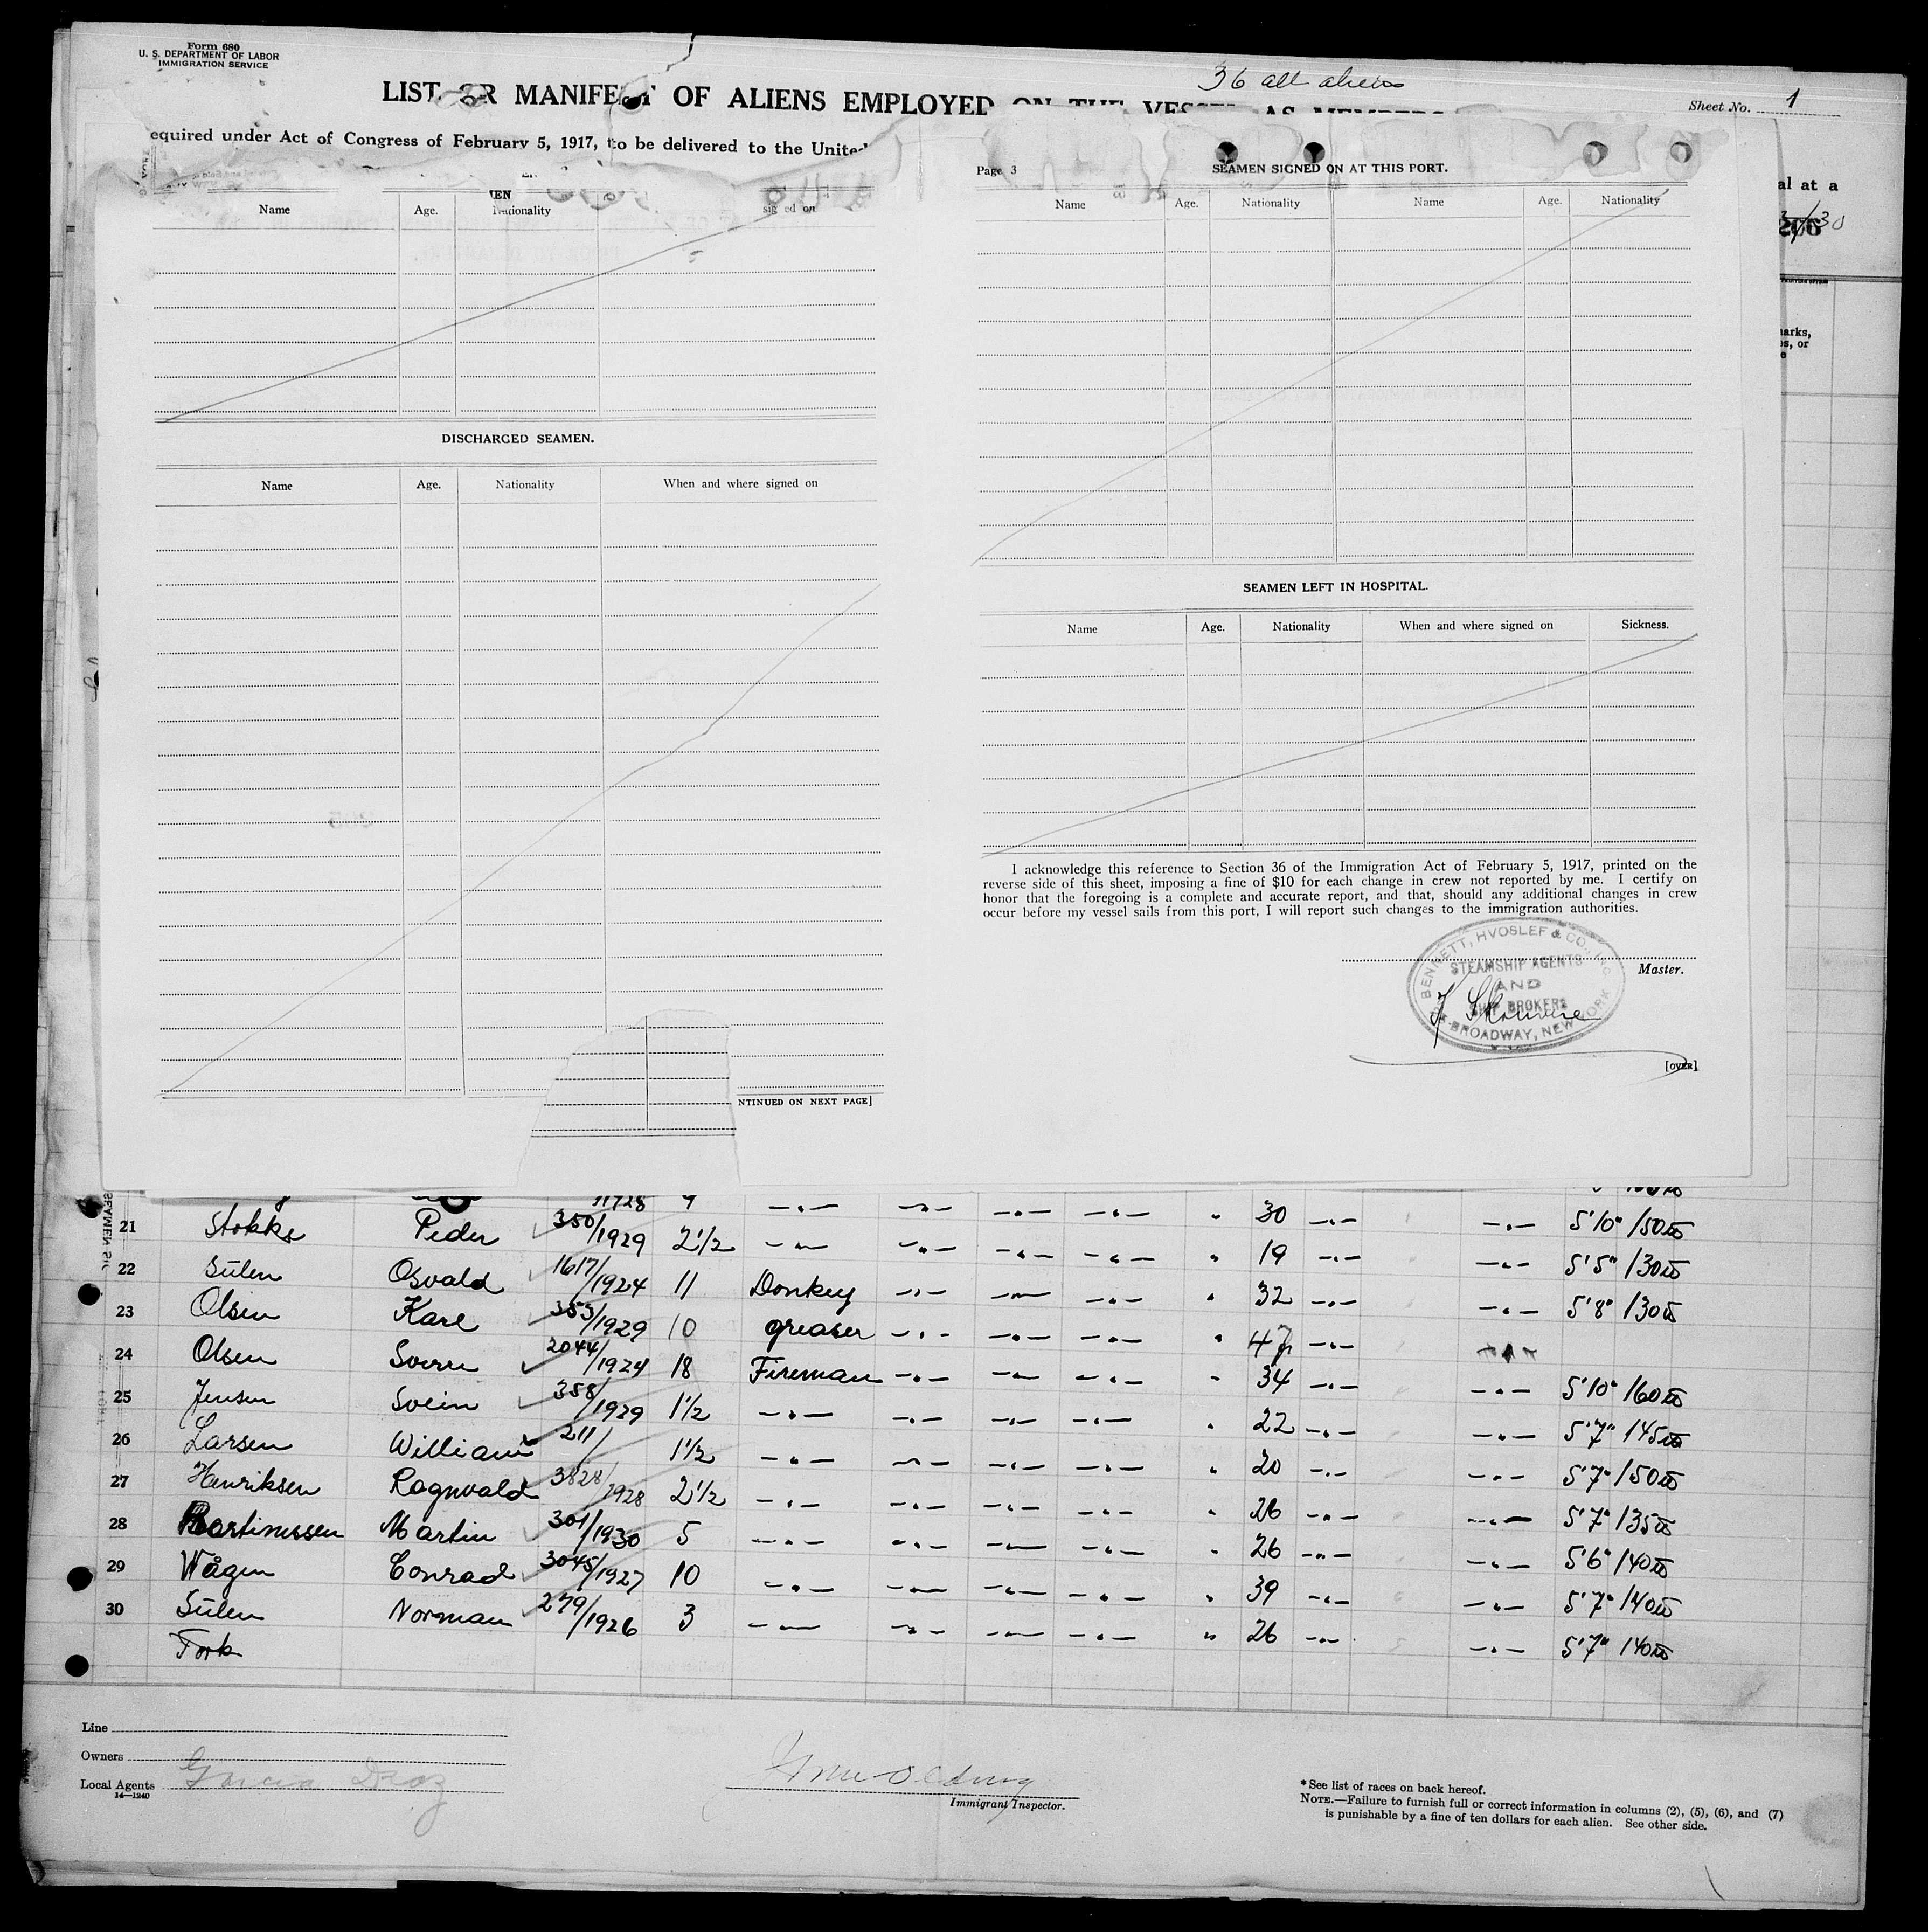 Form 680
U. S. DEPARTMENT OF LABOR
IMMIGRATION SERVICE
36 all aliens
LIST OR MANIFEST OF ALIENS EMPLOYED ON THE VESSEL AS MEMBERS
Sheet No. 1
equired under Act of Congress of February 5, 1917, to be delivered to the United
al at a
Page 3
SEAMEN SIGNED ON AT THIS PORT.
Name Age. Nationality signed on
Name Age. Nationality Name Age. Nationality
arks,
es, or
e
DISCHARGED SEAMEN.
Name Age. Nationality When and where signed on
SEAMEN LEFT IN HOSPITAL.
Name Age. Nationality When and where signed on Sickness.
I acknowledge this reference to Section 36 of the Immigration Act of February 5, 1917, printed on the
reverse side of this sheet, imposing a fine of $10 for each change in crew not reported by me. I certify on
honor that the foregoing is a complete and accurate report, and that, should any additional changes in crew
occur before my vessel sails from this port, I will report such changes to the immigration authorities.
BENNETT, HVOSLEF & CO., INC.
STEAMSHIP AGENTS
AND
SHIP BROKERS
BROADWAY, NEW YORK
Master.
[OVER]
NTINUED ON NEXT PAGE]
1928 9 —.— —.— —.— —.— " 30 —.— —.— 5'10" 150
21 Stokke Peder 350/1929 2 1/2 —.— —.— —.— —.— " 19 —.— —.— 5'5" 130
22 Sülen Osvald 1617/1924 11 Donkey —.— —.— —.— " 32 —.— —.— 5'8" 130
23 Olsen Kare 353/1929 10 greaser —.— —.— —.— " 47 —.—
24 Olsen Sverre 2044/1924 18 Fireman —.— —.— —.— " 34 —.— —.— 5'10" 160
25 Jensen Svein 358/1929 1 1/2 —.— —.— —.— —.— " 22 —.— —.— 5'7" 145
26 Larsen William 211/ 1 1/2 —.— —.— —.— —.— " 20 —.— —.— 5'7" 150
27 Henriksen Ragnvald 3828/1928 2 1/2 —.— —.— —.— —.— " 26 —.— —.— 5'7" 135
28 Martinussen Martin 301/1930 5 —.— —.— —.— —.— " 26 —.— —.— 5'6" 140
29 Wågen Conrad 3045/1927 10 —.— —.— —.— —.— " 39 —.— —.— 5'7" 140
30 Sülen Norman 279/1926 3 —.— —.— —.— —.— " 26 —.— —.— 5'7" 140
Tork
Line
Owners
Local Agents Garcia Diaz
14—1240
Immigrant Inspector.
* See list of races on back hereof.
NOTE.—Failure to furnish full or correct information in columns (2), (5), (6), and (7)
is punishable by a fine of ten dollars for each alien. See other side.